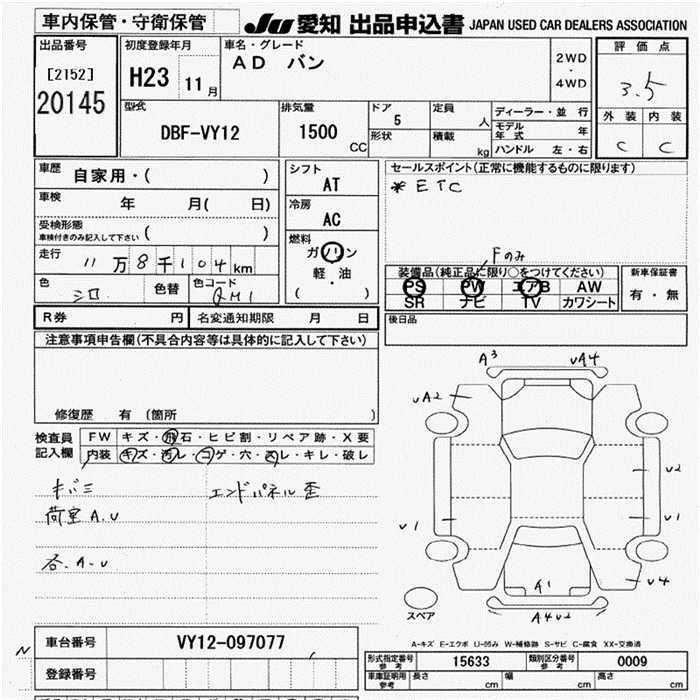 車内保管・守衛保管
JU 愛知 出品申込書 JAPAN USED CAR DEALERS ASSOCIATION
出品番号
[2152]
20145
初度登録年月
H23 11月
車名・グレード
AD バン
2WD
・
4WD
評価点
3.5
外装 内装
C C
型式
DBF-VY12
排気量
1500
CC
ドア
5
定員
人
形状
積載
kg
ディーラー・並行
モデル年式 年
ハンドル 左・右
車歴
自家用・( )
車検
年 月( 日)
受検形態
車検付きのみ記入して下さい ( )
走行
11万8千104km
色
シロ
色替
色コード
QM1
シフト
AT
冷房
AC
燃料
ガソリン
軽・油
( )
セールスポイント(正常に機能するものに限ります)
*ETC
Fのみ
装備品(純正品に限り○をつけてください)
PS PW エアB AW
SR ナビ TV カワシート
新車保証書
有・無
後日品
R券 円
名変通知期限 月 日
注意事項申告欄(不具合内容等は具体的に記入して下さい)
修復歴 有 (箇所 )
検査員
記入欄
FW キズ・飛石・ヒビ割・リペア跡・X要
内装 キズ・汚レ・コゲ・穴・スレ・キレ・破レ
キバミ
エンドパネル歪
荷室A.U
各.A-U
A3
UA4
UA2
U2
U1
U1
U4
A1
A4U2
スペア
A-キズ E-エクボ U-凹み W-補修跡 S-サビ C-腐食 XX-交換済
車台番号
VY12-097077
登録番号
N
型式指定番号
参考
15633
類別区分番号
参考
0009
車庫証明用
参考
長さ cm
幅 cm
高さ cm